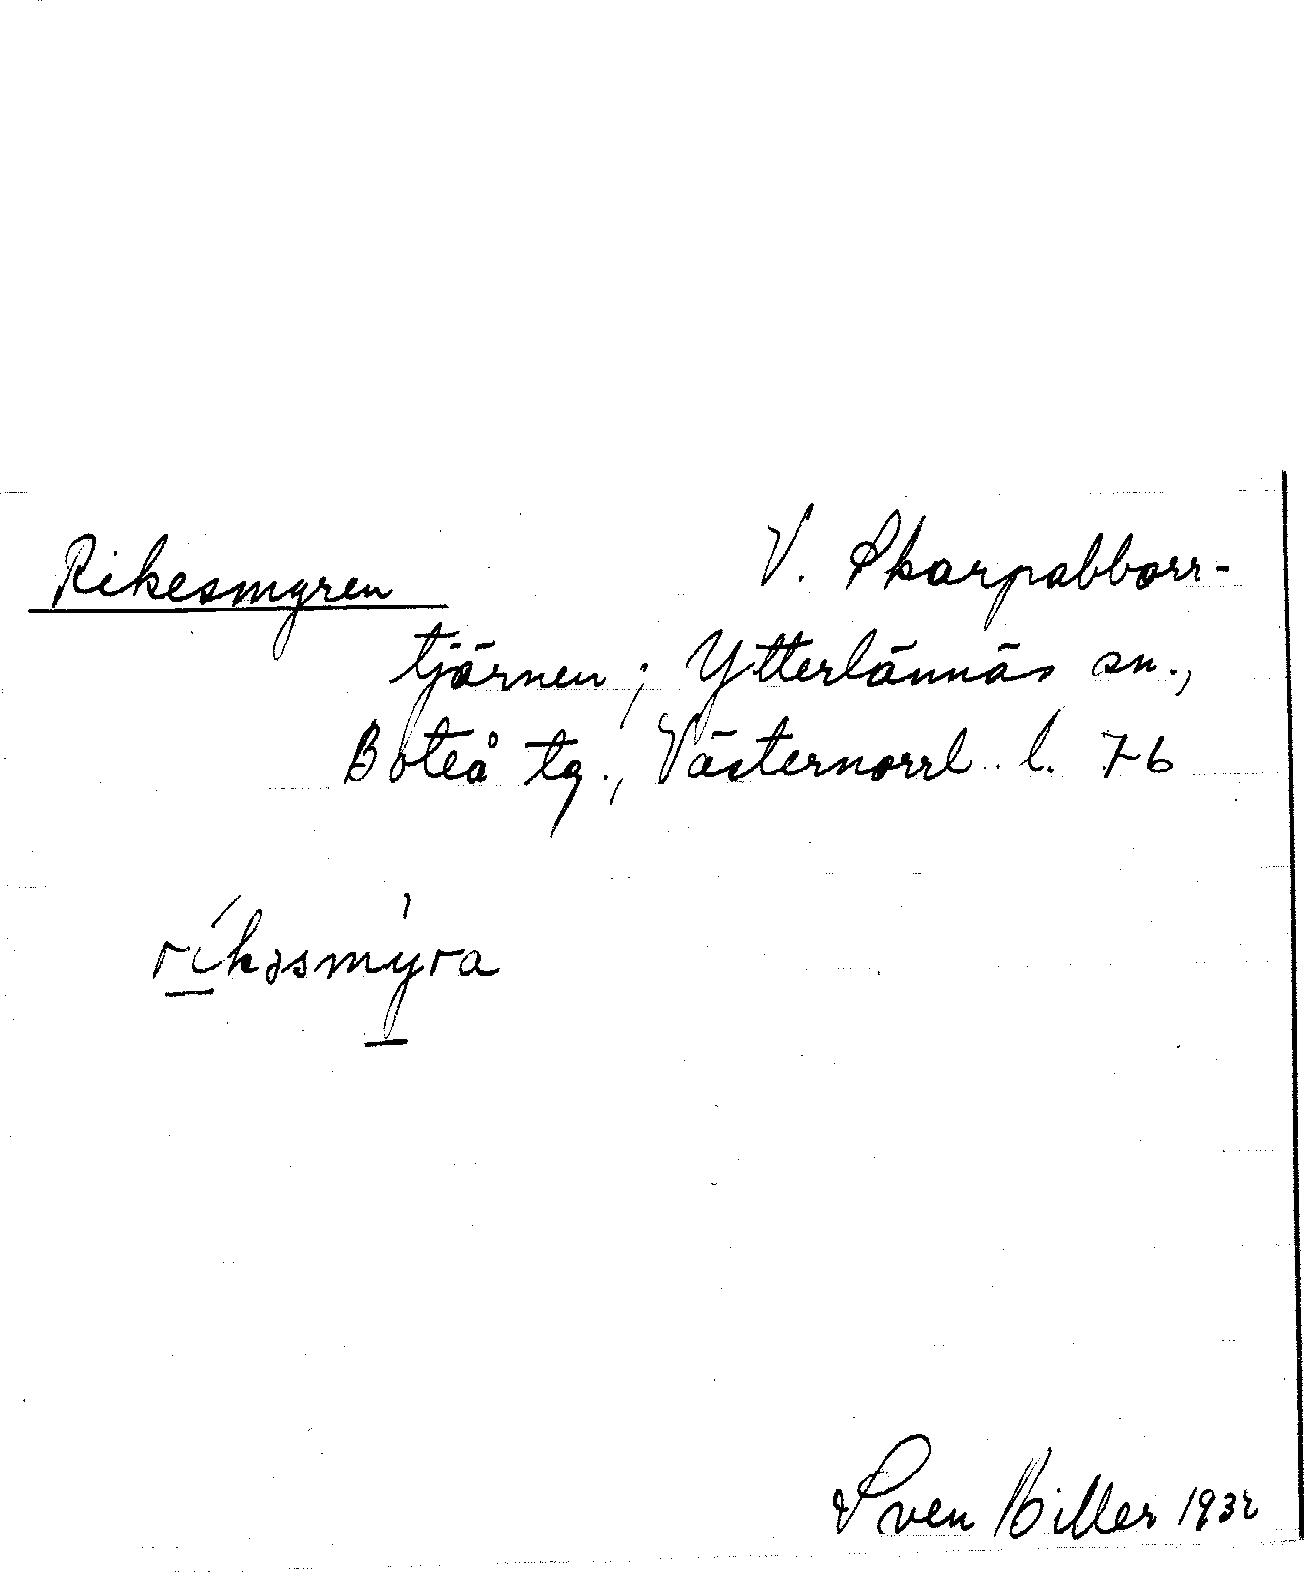 Rikesmyren V. Skarpabborr-
tjärnen; Ytterlännäs sn.,
Boteå tg., Västernorrl. l. 76
ríkəsmýra
Sven Hiller 1932